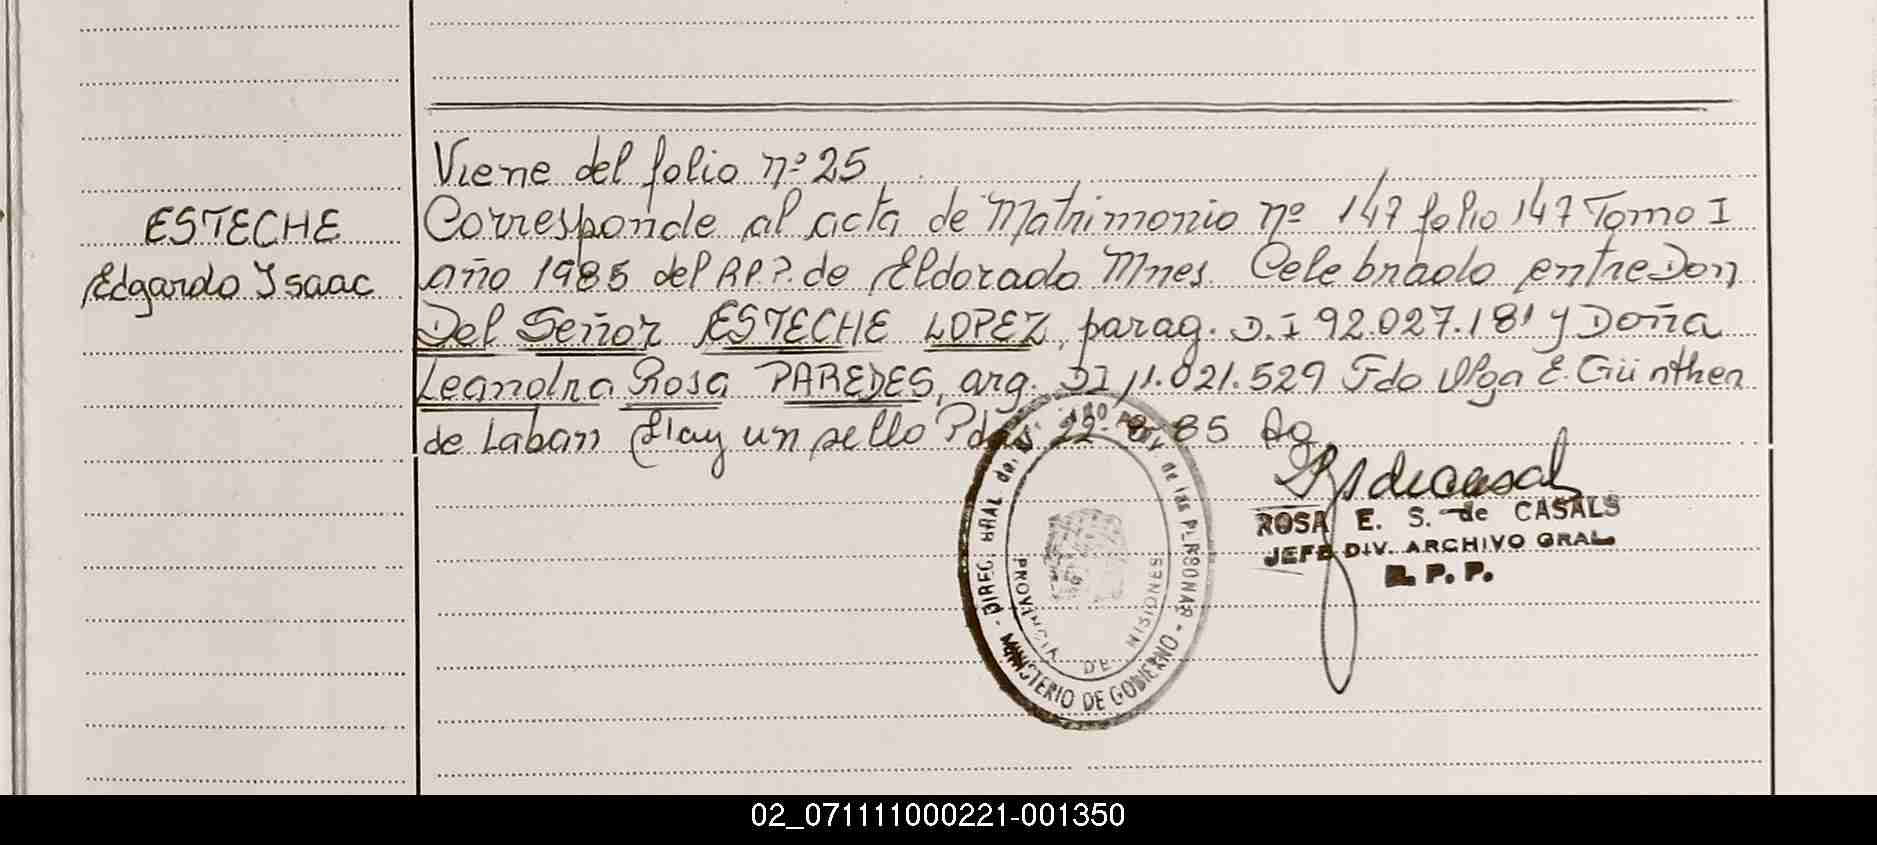 Viene del folio nº 25
ESTECHE
Edgardo Isaac
Corresponde al acta de Matrimonio nº 147 folio 147 Tomo I
año 1985 del R.P.P. de Eldorado Mnes. Celebrado entre Don
Del Señor ESTECHE LOPEZ, parag. D.I 92.027.181 y Doña
Leandra Rosa PAREDES, arg. DI 11.021.529 Fdo Olga E. Günther
de Laban Hay un sello Pdas 22.8.85
DIREC. GRAL de las PERSONAS - MINISTERIO DE GOBIERNO -
PROVINCIA DE MISIONES
ROSA E. S. de CASALS
JEFE DIV. ARCHIVO GRAL.
R. P. P.
02_071111000221-001350